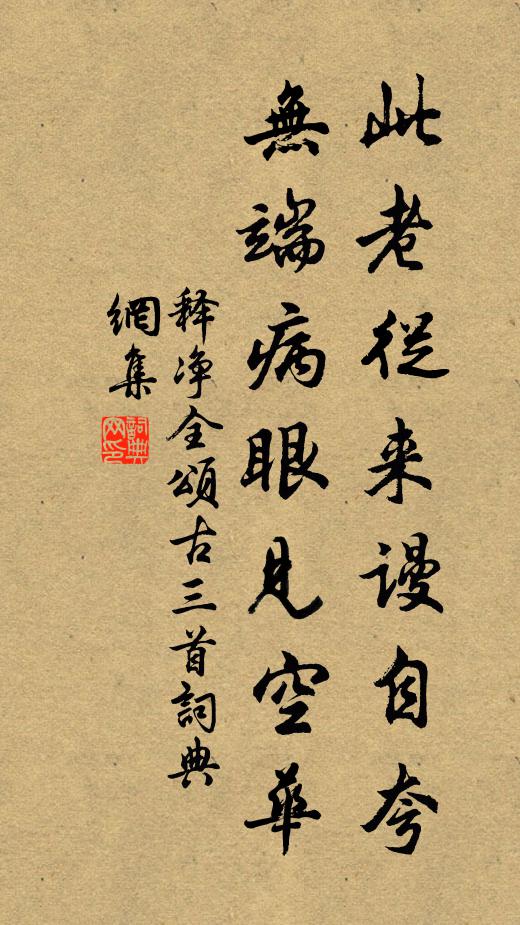 此老從来謾自夸
無端病眼見空華
释净全頌古三首詞典
網集
詞典
网印